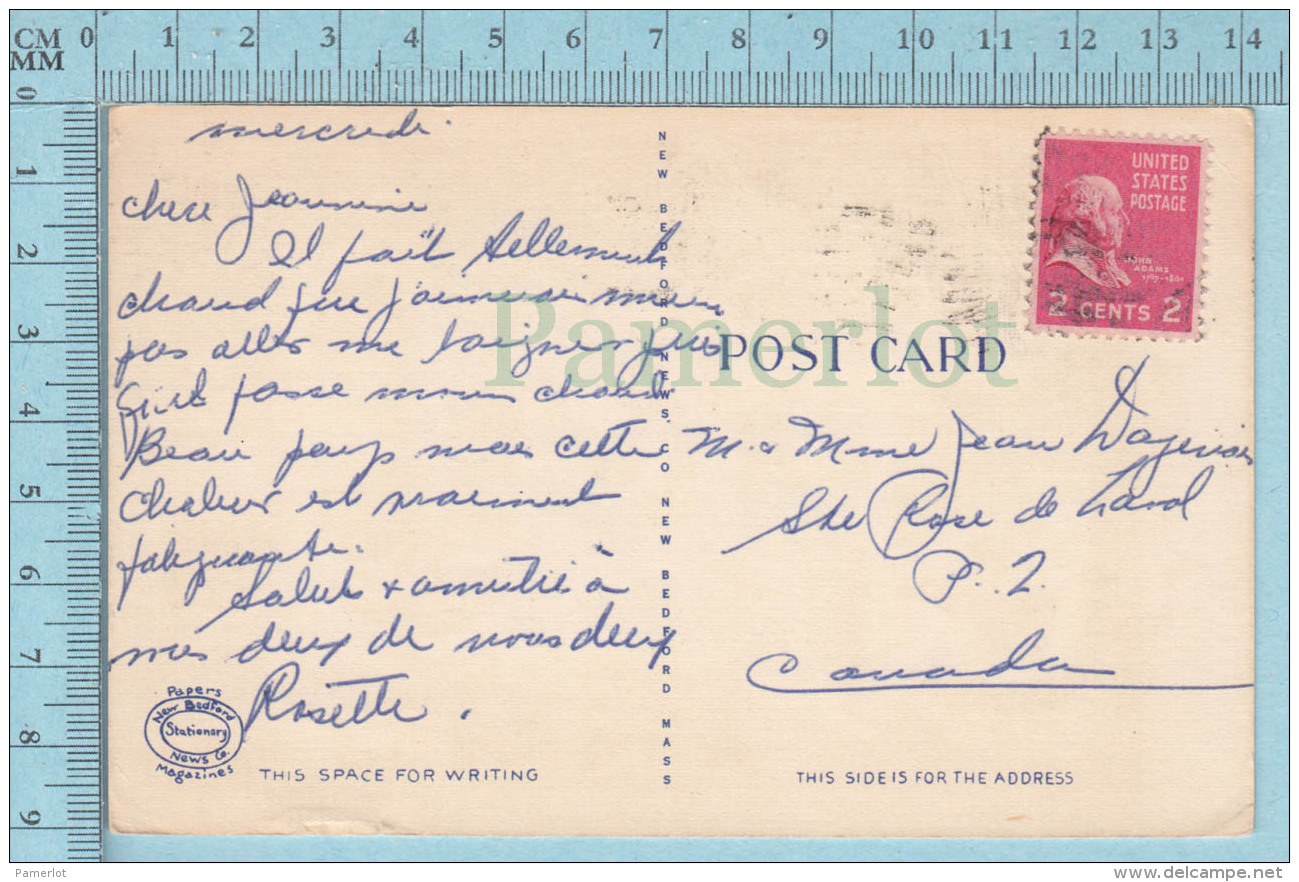 CM 0 1 2 3 4 5 6 7 8 9 10 11 12 13 14
MM
0
1
2
3
4
5
6
7
8
9
mercredi.
chere Jeannine
Il fait tellement
chaud que j'aimerais
pas aller me baigner
passe mon chaud
Beau pays mais cette
chaleur est vraiment
fatiguante.
Saluts + amitié à
vous deux de nous deux
Rosette.
Papers
New Bedford
Stationary
News Co.
Magazines
THIS SPACE FOR WRITING
NEW BEDFORD NEWS. CO NEW BEDFORD MASS
UNITED
STATES
POSTAGE
JOHN
ADAMS
1797-1801
2 CENTS 2
Pamerlot
POST CARD
M. & Mme Jean Dagenais
Ste Rose de Laval
P. Q.
Canada
THIS SIDE IS FOR THE ADDRESS
Pamerlot
delcampe.net